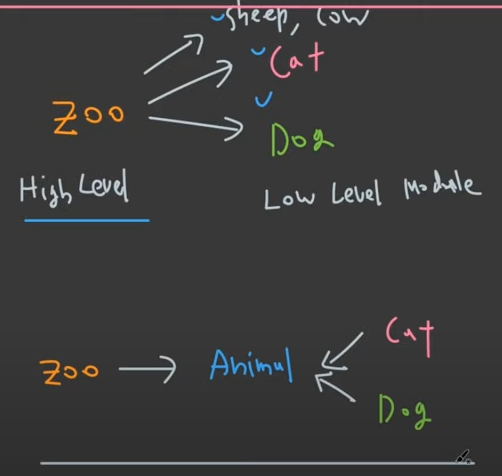 sheep, cow
Cat
Zoo
Dog
High Level
Low Level Module
Cat
Zoo
Animal
Dog